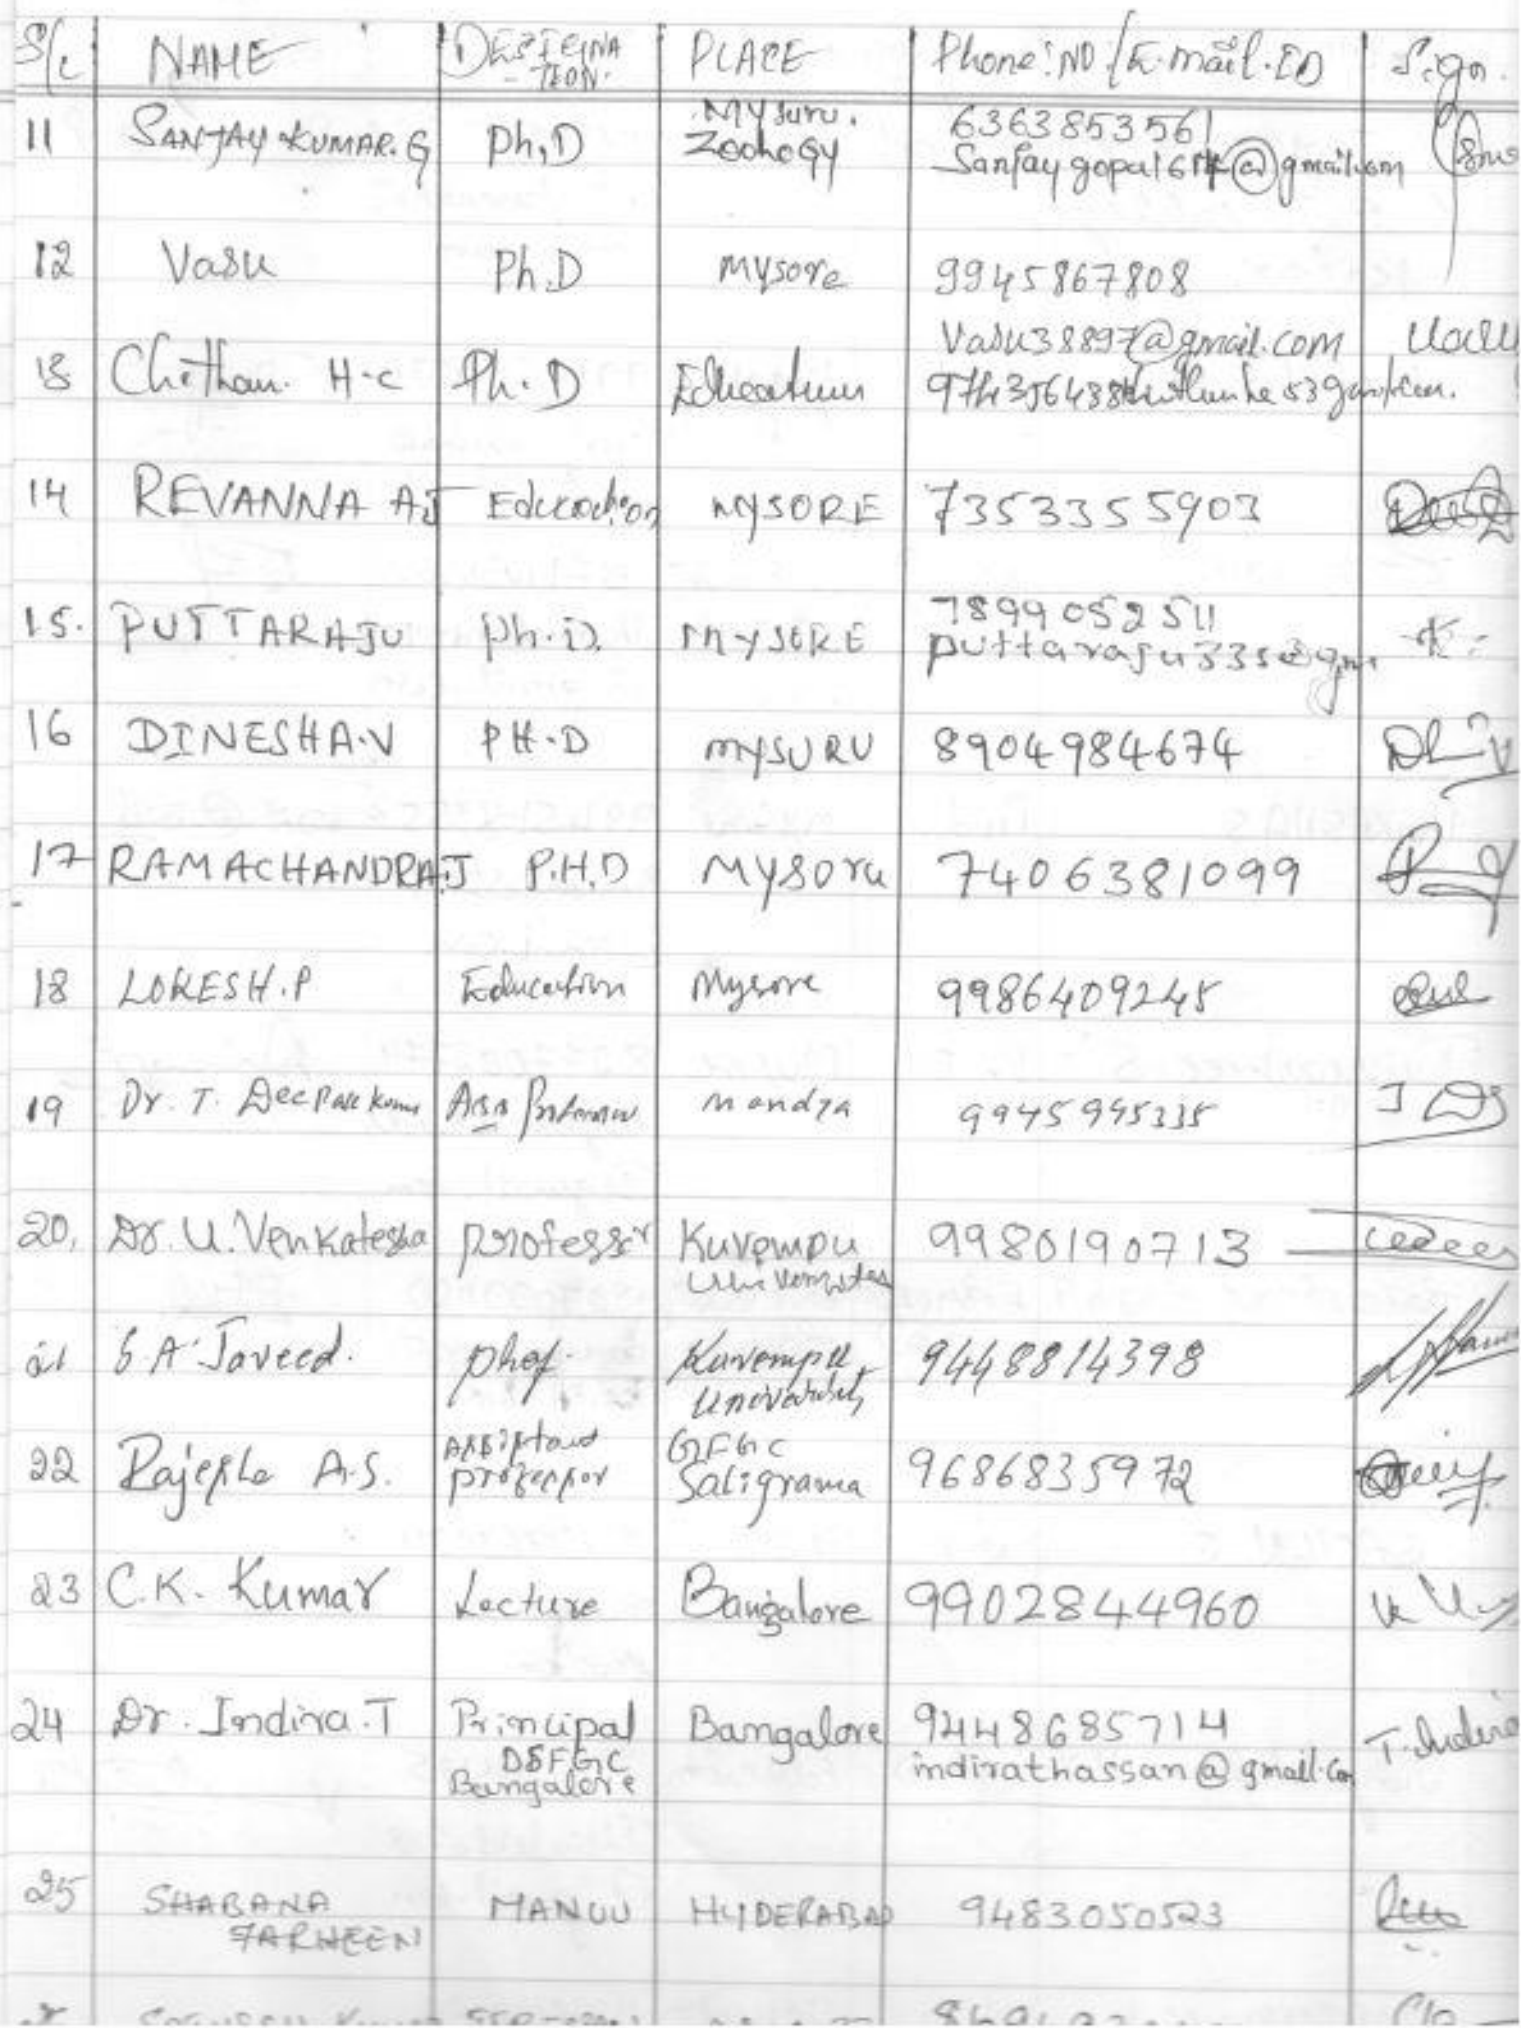 S/L NAME DESIGINATION. PLACE Phone: NO / E.mail.ID Sign.
11 SANJAY KUMAR. G Ph.D Mysuru. Zoology 6363853561
12 Vasu Ph.D Mysore 9945867808
Vasu38897@gmail.com Vasu
13 Chethan. H-C Ph.D Education
14 REVANNA AJ Education MYSORE 7353355903
15. PUTTARAJU Ph.D. MYSORE 7899052511
puttaraju335@gm
16 DINESHA.V PH.D MYSURU 8904984674
17 RAMACHANDRA.J P.H.D MYSORU 7406381099
18 LOKESH.P Education Mysore 9986409245
19 Dr. T. Deepak Kumar Ass Professor Mandya 9945945335
20, Dr. U. Venkatesha professor Kuvempu University 9980190713
21 S.A. Javeed. Prof. Kuvempu University 9448814398
22 Rajesha A.S. Assistant professor GFGC Saligrama 9686835972
23 C.K. Kumar Lecture Bangalore 9902844960
24 Dr. Indira.T Principal DSFGC Bangalore Bangalore 9448685714 T. Indira
indirathassan@gmail.com
25 SHABANA FARHEEN MANUU HYDERABAD 9483050523